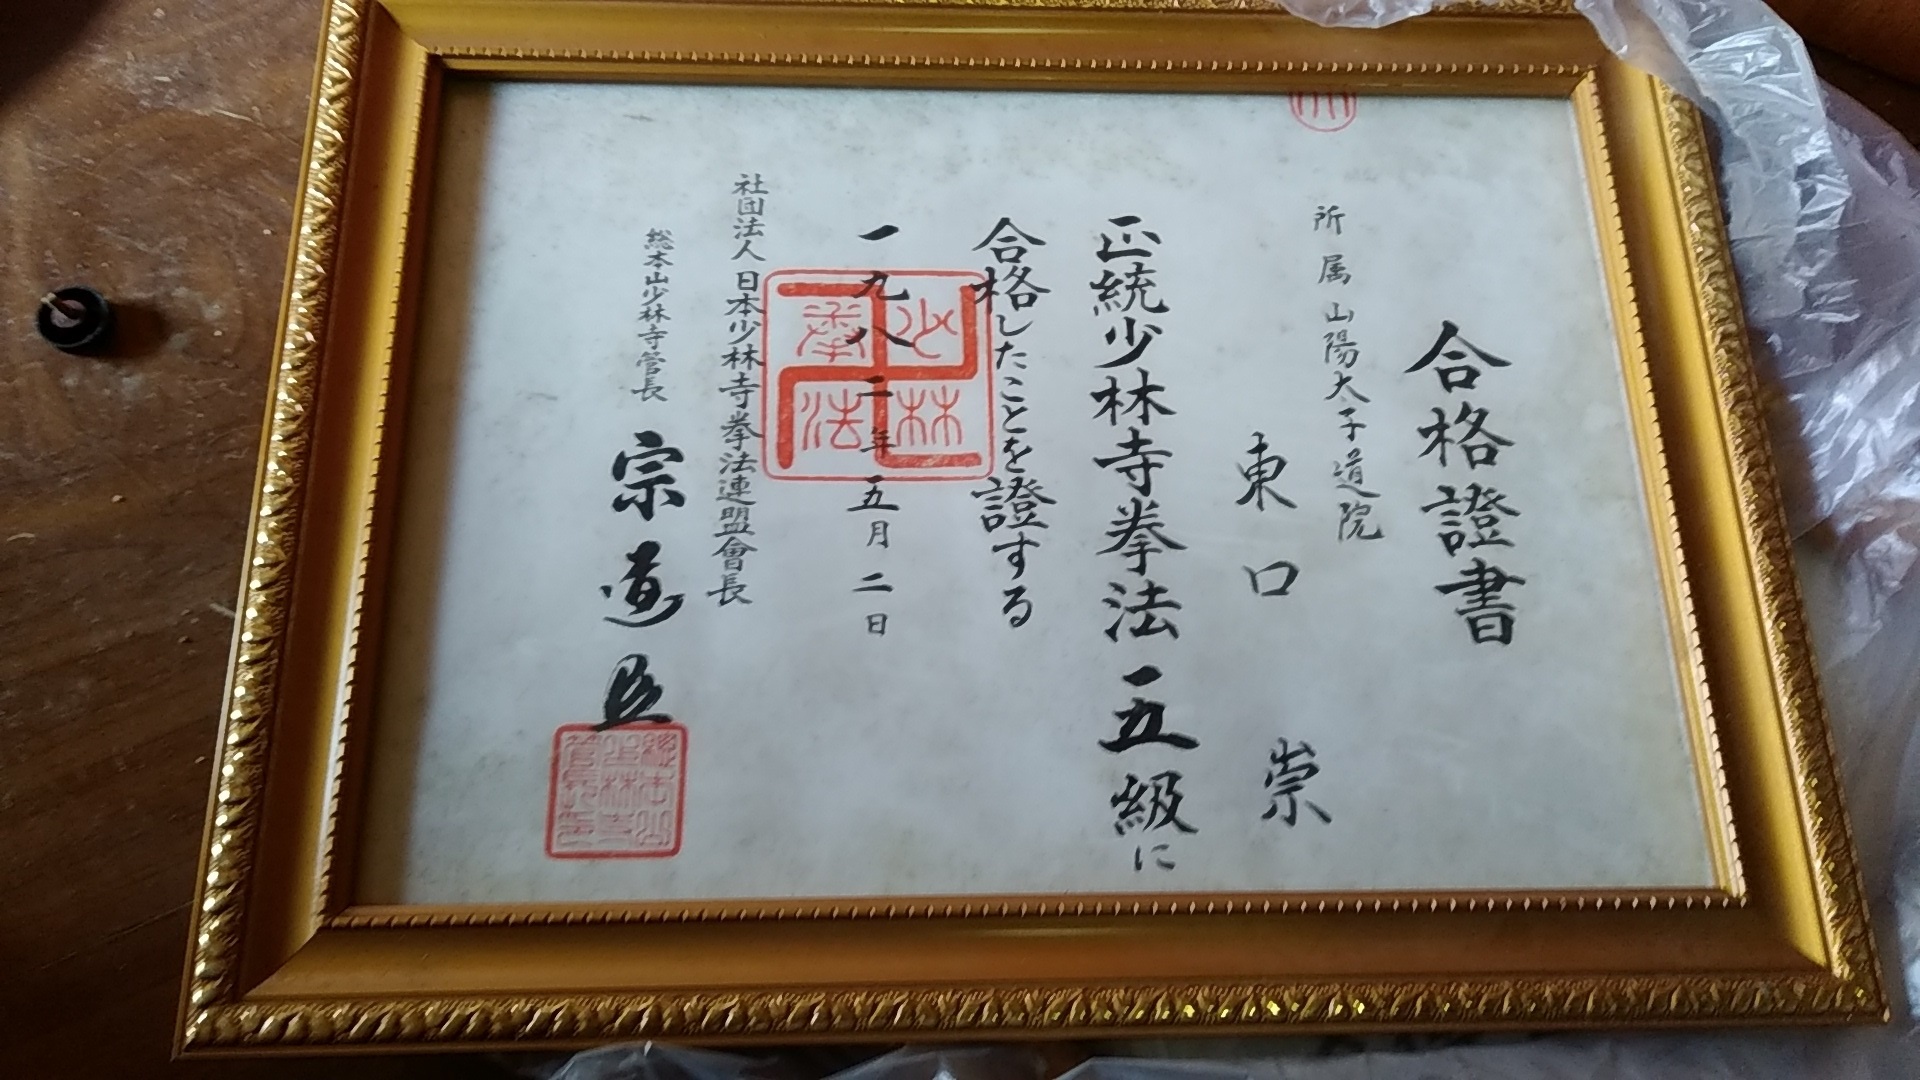 合格證書
所属 山陽太子道院
東口 崇
正統少林寺拳法 五級に
合格したことを證する
一九八二年 五月二日
社団法人 日本少林寺拳法連盟會長
総本山少林寺管長 宗道臣
少林
拳法